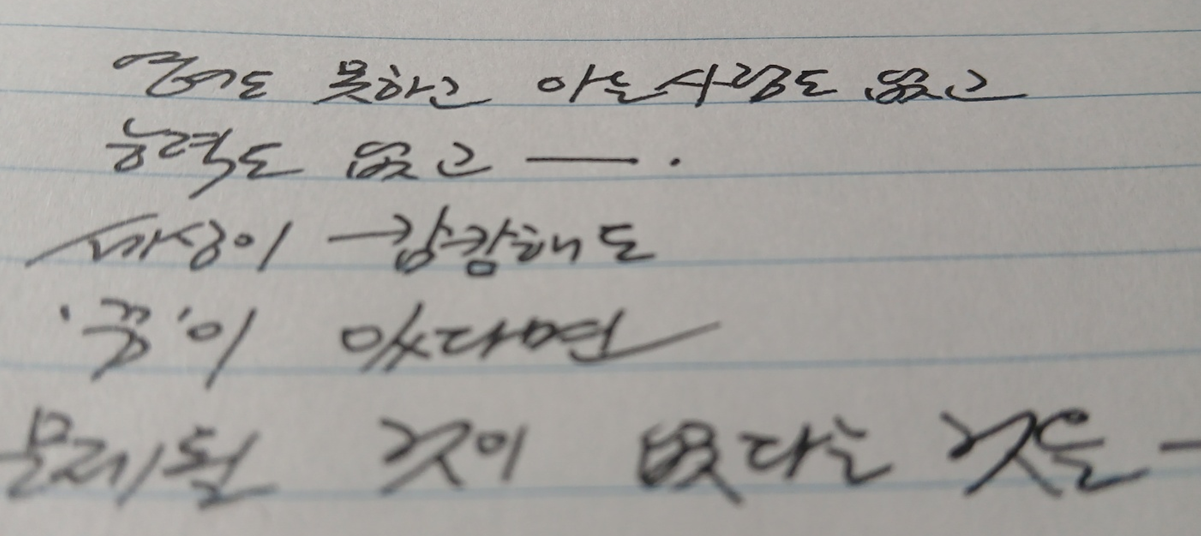 영어도 못하고 아는사람도 없고
능력도 없고 ─ .
세상이 캄캄해도
'꿈'이 있다면
문제될 것이 없다는 것을 -